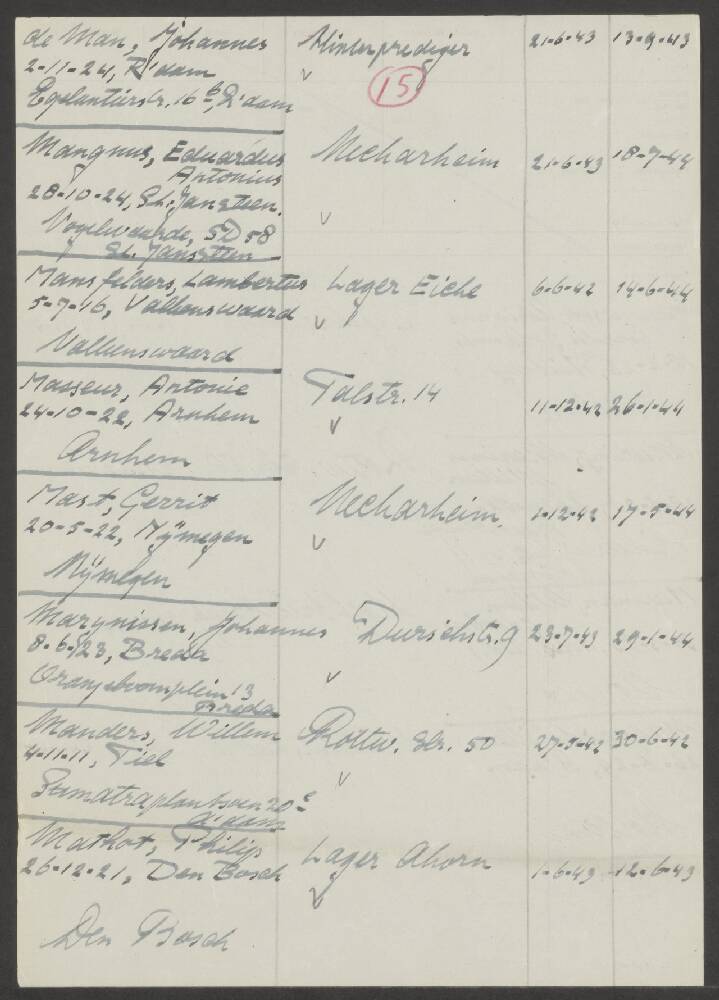 de Man, Johannes Hinterprediger 21-6-43 13-9-43
2-11-24, R'dam
15
Egelantierstr. 16 b, R'dam
Mangnus, Eduardus Neckarheim 21-6-43 18-7-44
Antonius
28-10-24, St. Jansteen.
Vogelwaarde, 5D 58
St. Jansteen
Mansfelders, Lambertus Lager Eiche 6-6-42 14-6-44
5-7-16, Valkenswaard
Valkenswaard
Masseur, Antonie Talstr. 14 11-12-42 26-1-44
24-10-22, Arnhem
Arnhem
Mast, Gerrit Neckarheim. 1-12-42 17-5-44
20-5-22, Nijmegen
Nijmegen
Marynissen, Johannes 9 23-7-43 29-1-44
8-6-23, Breda
Oranjeboomplein 13
Breda
Manders, Willem Rottw. Str. 50 27-5-42 30-6-42
4-11-11, Tiel
Sumatraplantsoen 20 c
A'dam
Mathot, Philip Lager Ahorn 1-6-43 12-6-43
26-12-21, Den Bosch
Den Bosch